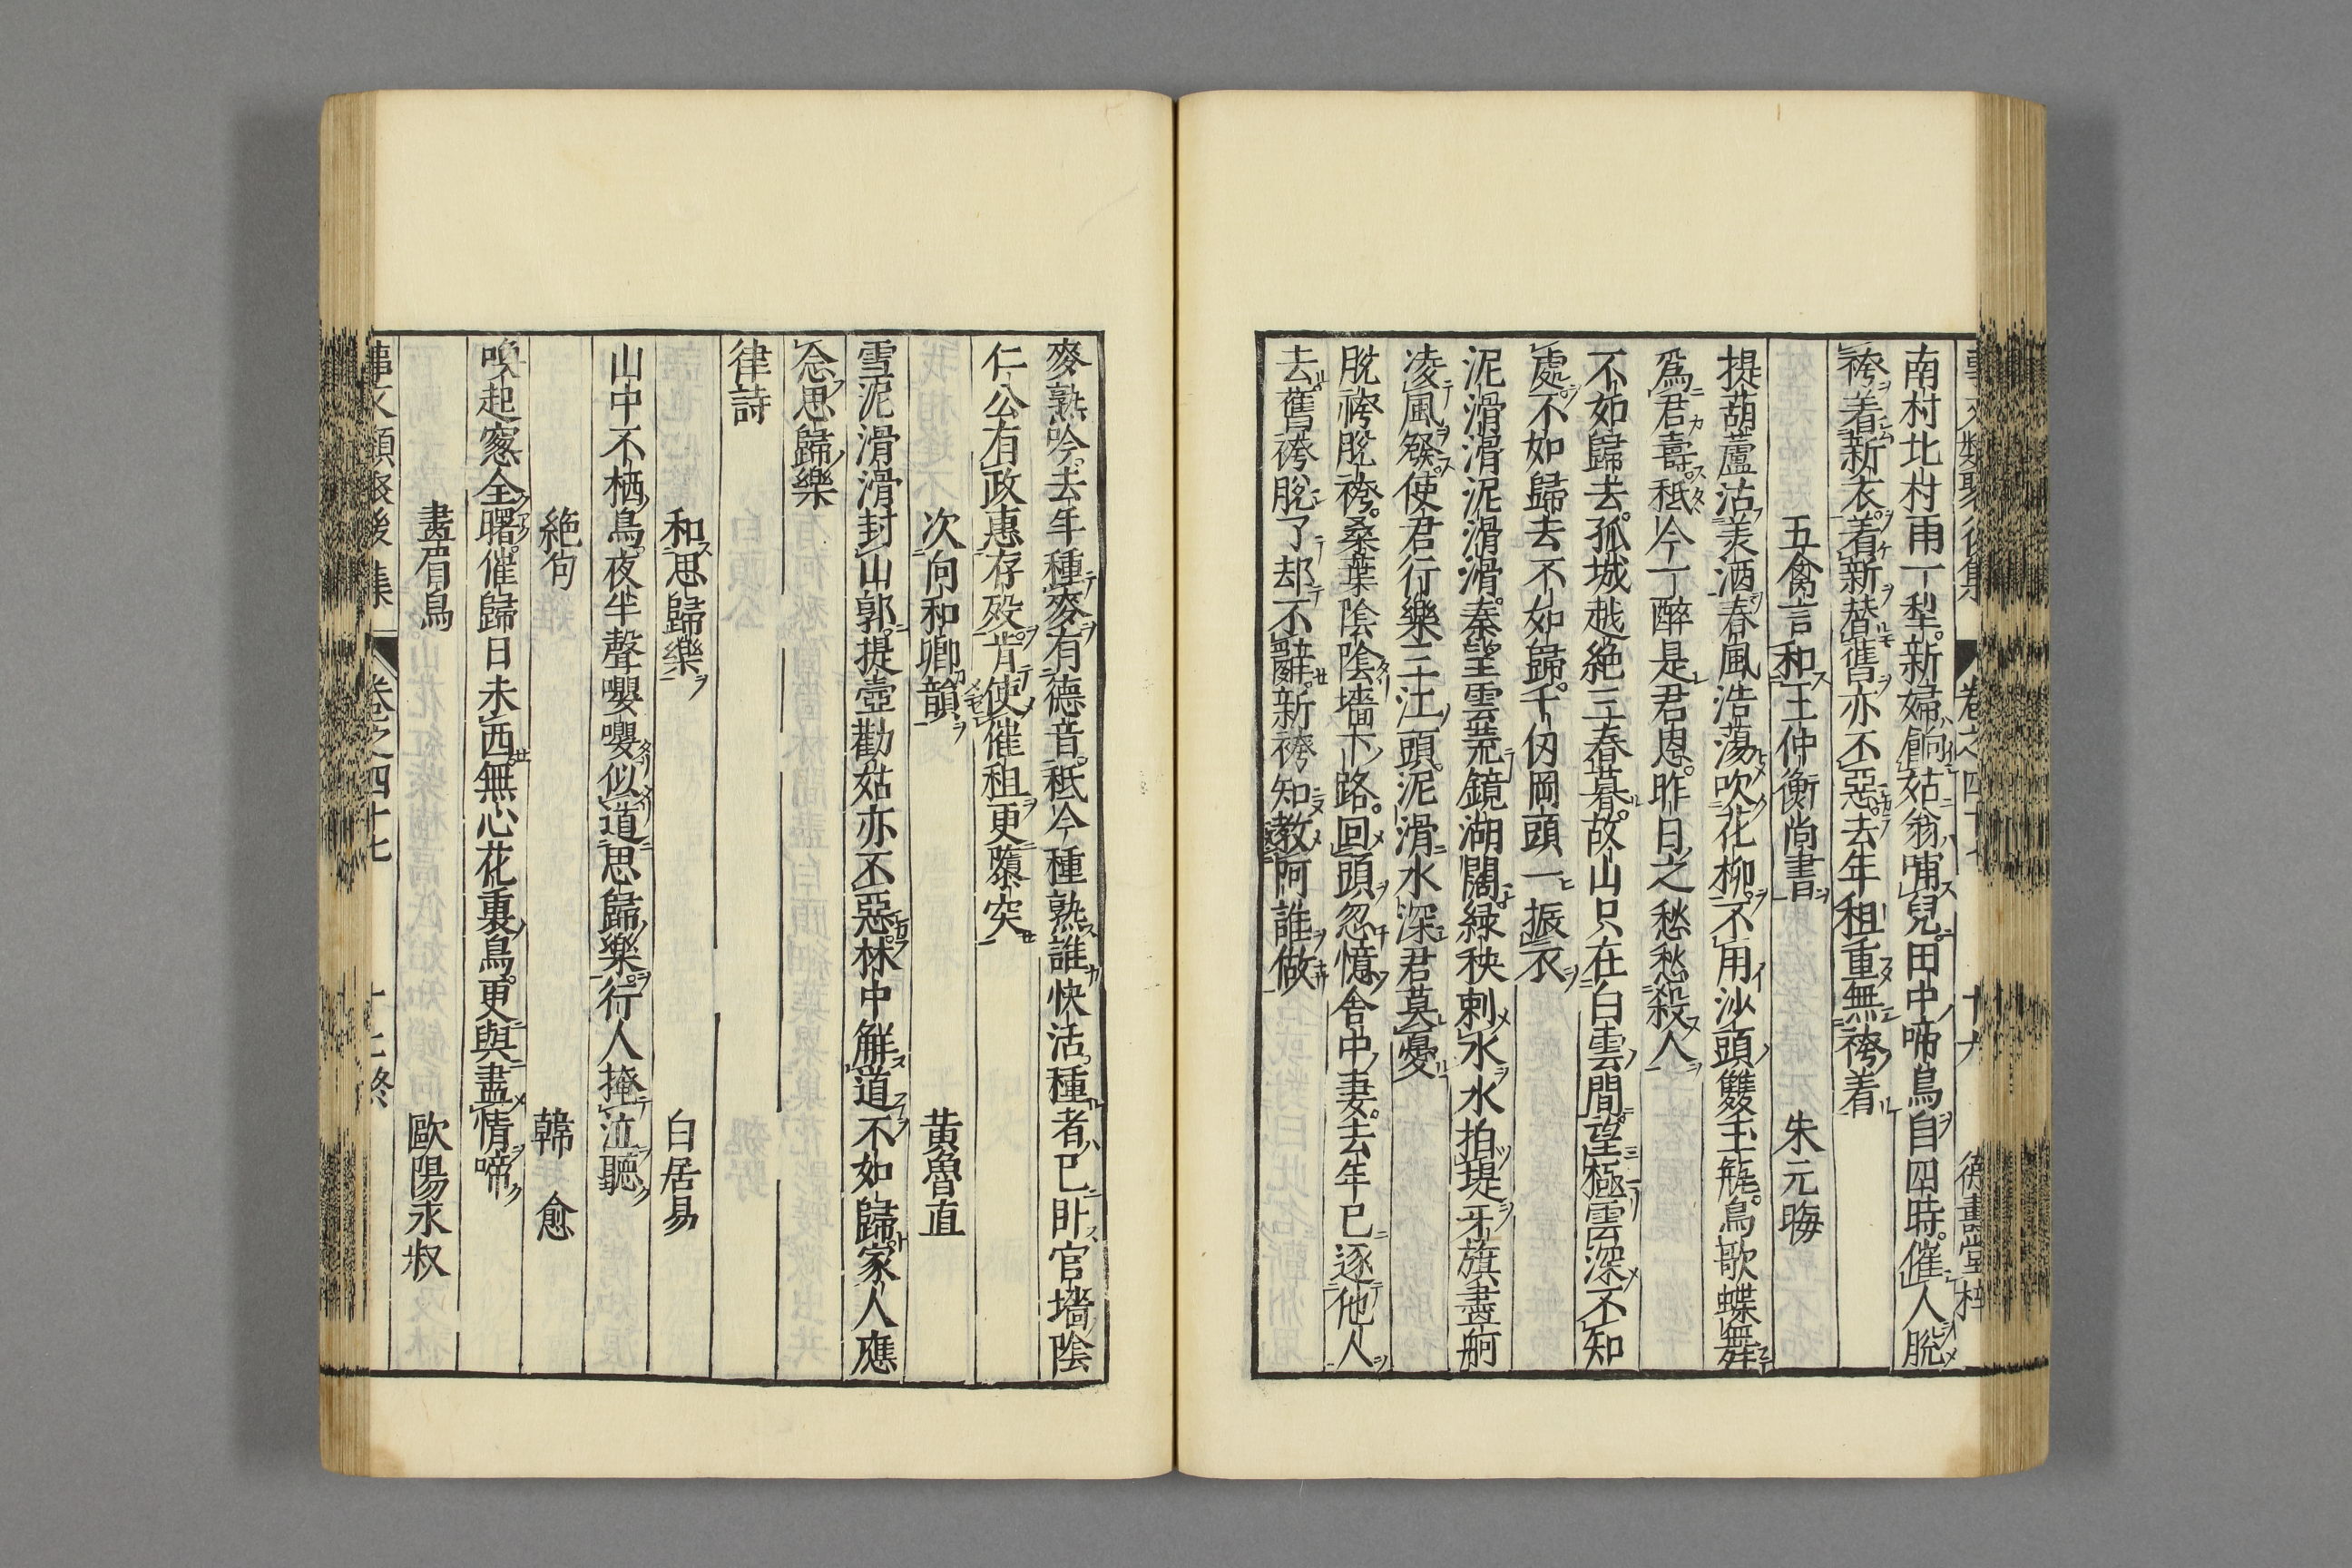 事文類聚後集 卷之四十七 十六
南村北村雨一犁。新婦餉姑翁哺兒。田中啼鳥自四時。催人脫
袴着新衣。着新替舊亦不惡。去年租重無袴着
五禽言和王仲衡尚書 朱元晦
提葫蘆沽美酒春風浩蕩吹花柳。不用沙頭雙玉瓶。鳥歌蝶舞
爲君壽。秪今一醉是君恩。昨日之愁愁殺人
不如歸去。孤城越絶三春暮。故山只在白雲間。望極雲深不知
處。不如歸去不如歸。千仭岡頭一振衣
泥滑滑泥滑滑。秦望雲荒鏡湖闊。緑秧刺水水拍堤。牙旗畫舸
凌風發。使君行樂三江頭。泥滑水深君莫憂
脫袴脫袴。桑葉陰陰墻下路。回頭忽憶舍中妻。去年已逐他人
去舊袴脫了却不辭。新袴知教阿誰做
麥熟吟。去年種麥有德音。秪今種熟誰快活。種者已卧官墻陰
仁公有政惠存歿。肯使催租更隳突
次向和卿韻 黄魯直
雪泥滑滑封山郭。提壺勸姑亦不惡。林中解道不如歸。家人應
念思歸樂
律詩
和思歸樂 白居易
山中不栖鳥。夜半聲嚶嚶似道思歸樂。行人掩泣聽
絶句 韓愈
喚起窓全曙。催歸日未西。無心花裏鳥。更與盡情啼
畫眉鳥 歐陽永叔
事文類聚後集 卷之四十七 十七終